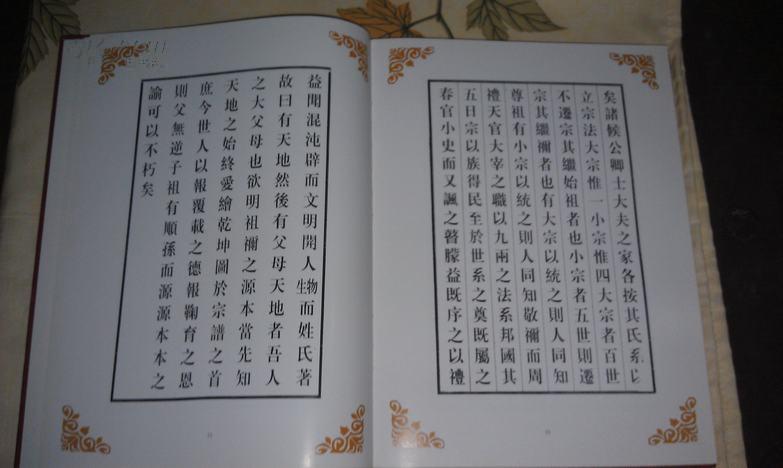 矣諸候公卿士大夫之家各按其氏系以
立宗法大宗惟一小宗惟四大宗者百世
不遷宗其繼始祖者也小宗者五世則遷
宗其繼禰者也有大宗以統之則人同知
尊祖有小宗以統之則人同知敬禰而周
禮天官大宰之職以九兩之法系邦國其
五日宗以族得民至於世系之奠既屬之
春官小史而又諷之瞽矇益既序之以禮
益聞混沌辟而文明開人物生而姓氏著
故曰有天地然後有父母天地者吾人
之大父母也欲明祖禰之源本當先知
天地之始終愛繪乾坤圖於宗譜之首
庶今世人以報覆載之德報鞠育之恩
則父無逆子祖有順孫而源源本本之
諭可以不朽矣